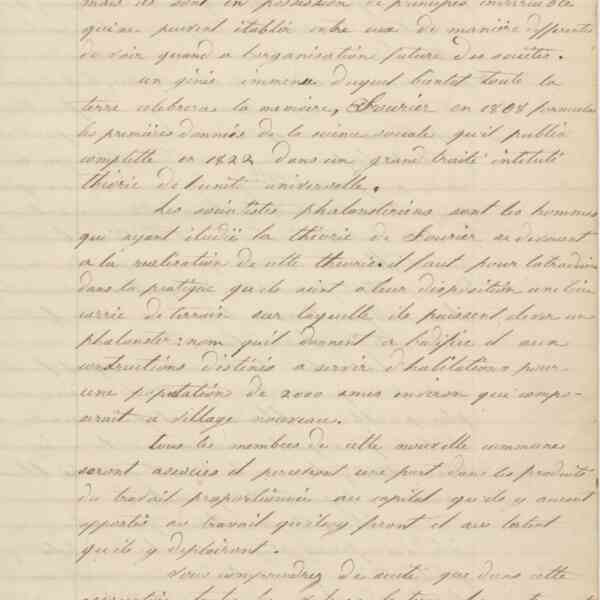 mais ils sont en possession de principes invariable
qui ne peuvent établir entre eux de manière differente
de voir quand a l'organisation future des sociétés.
un génie immense duquel bientot toute la
terre celebrera la memoire, Fourier en 1808 formula
les premières données de la sience sociale qu'il publia
complette en 1822 dans un grand traité intitulé
théorie de l'unité universelle.
Les socialistes phalanstériens sont les hommes
qui ayant étudié la théorie de Fourier se devouent
a la realisation de cette theorie. il faut pour la traduire
dans la pratique qu'ils aient a leur disposition une lieu
carrée de terrain sur laquelle ils puissent élever un
phalanster: nom qu'il donnent a l'edifice et aux
constructions destinés a servir d'habitations pour
une population de 2000 ames environ qui compo-
serait ce village nouveau.
tous les membres de cette nouvelle commune
seront associés et percevront une part dans les produits
du travail proportionnée au capital qu'ils y auront
apportés au travail qu'ils y feront et aux talent
qu'ils y deploiront.
Vous comprendrez de suite que dans cette